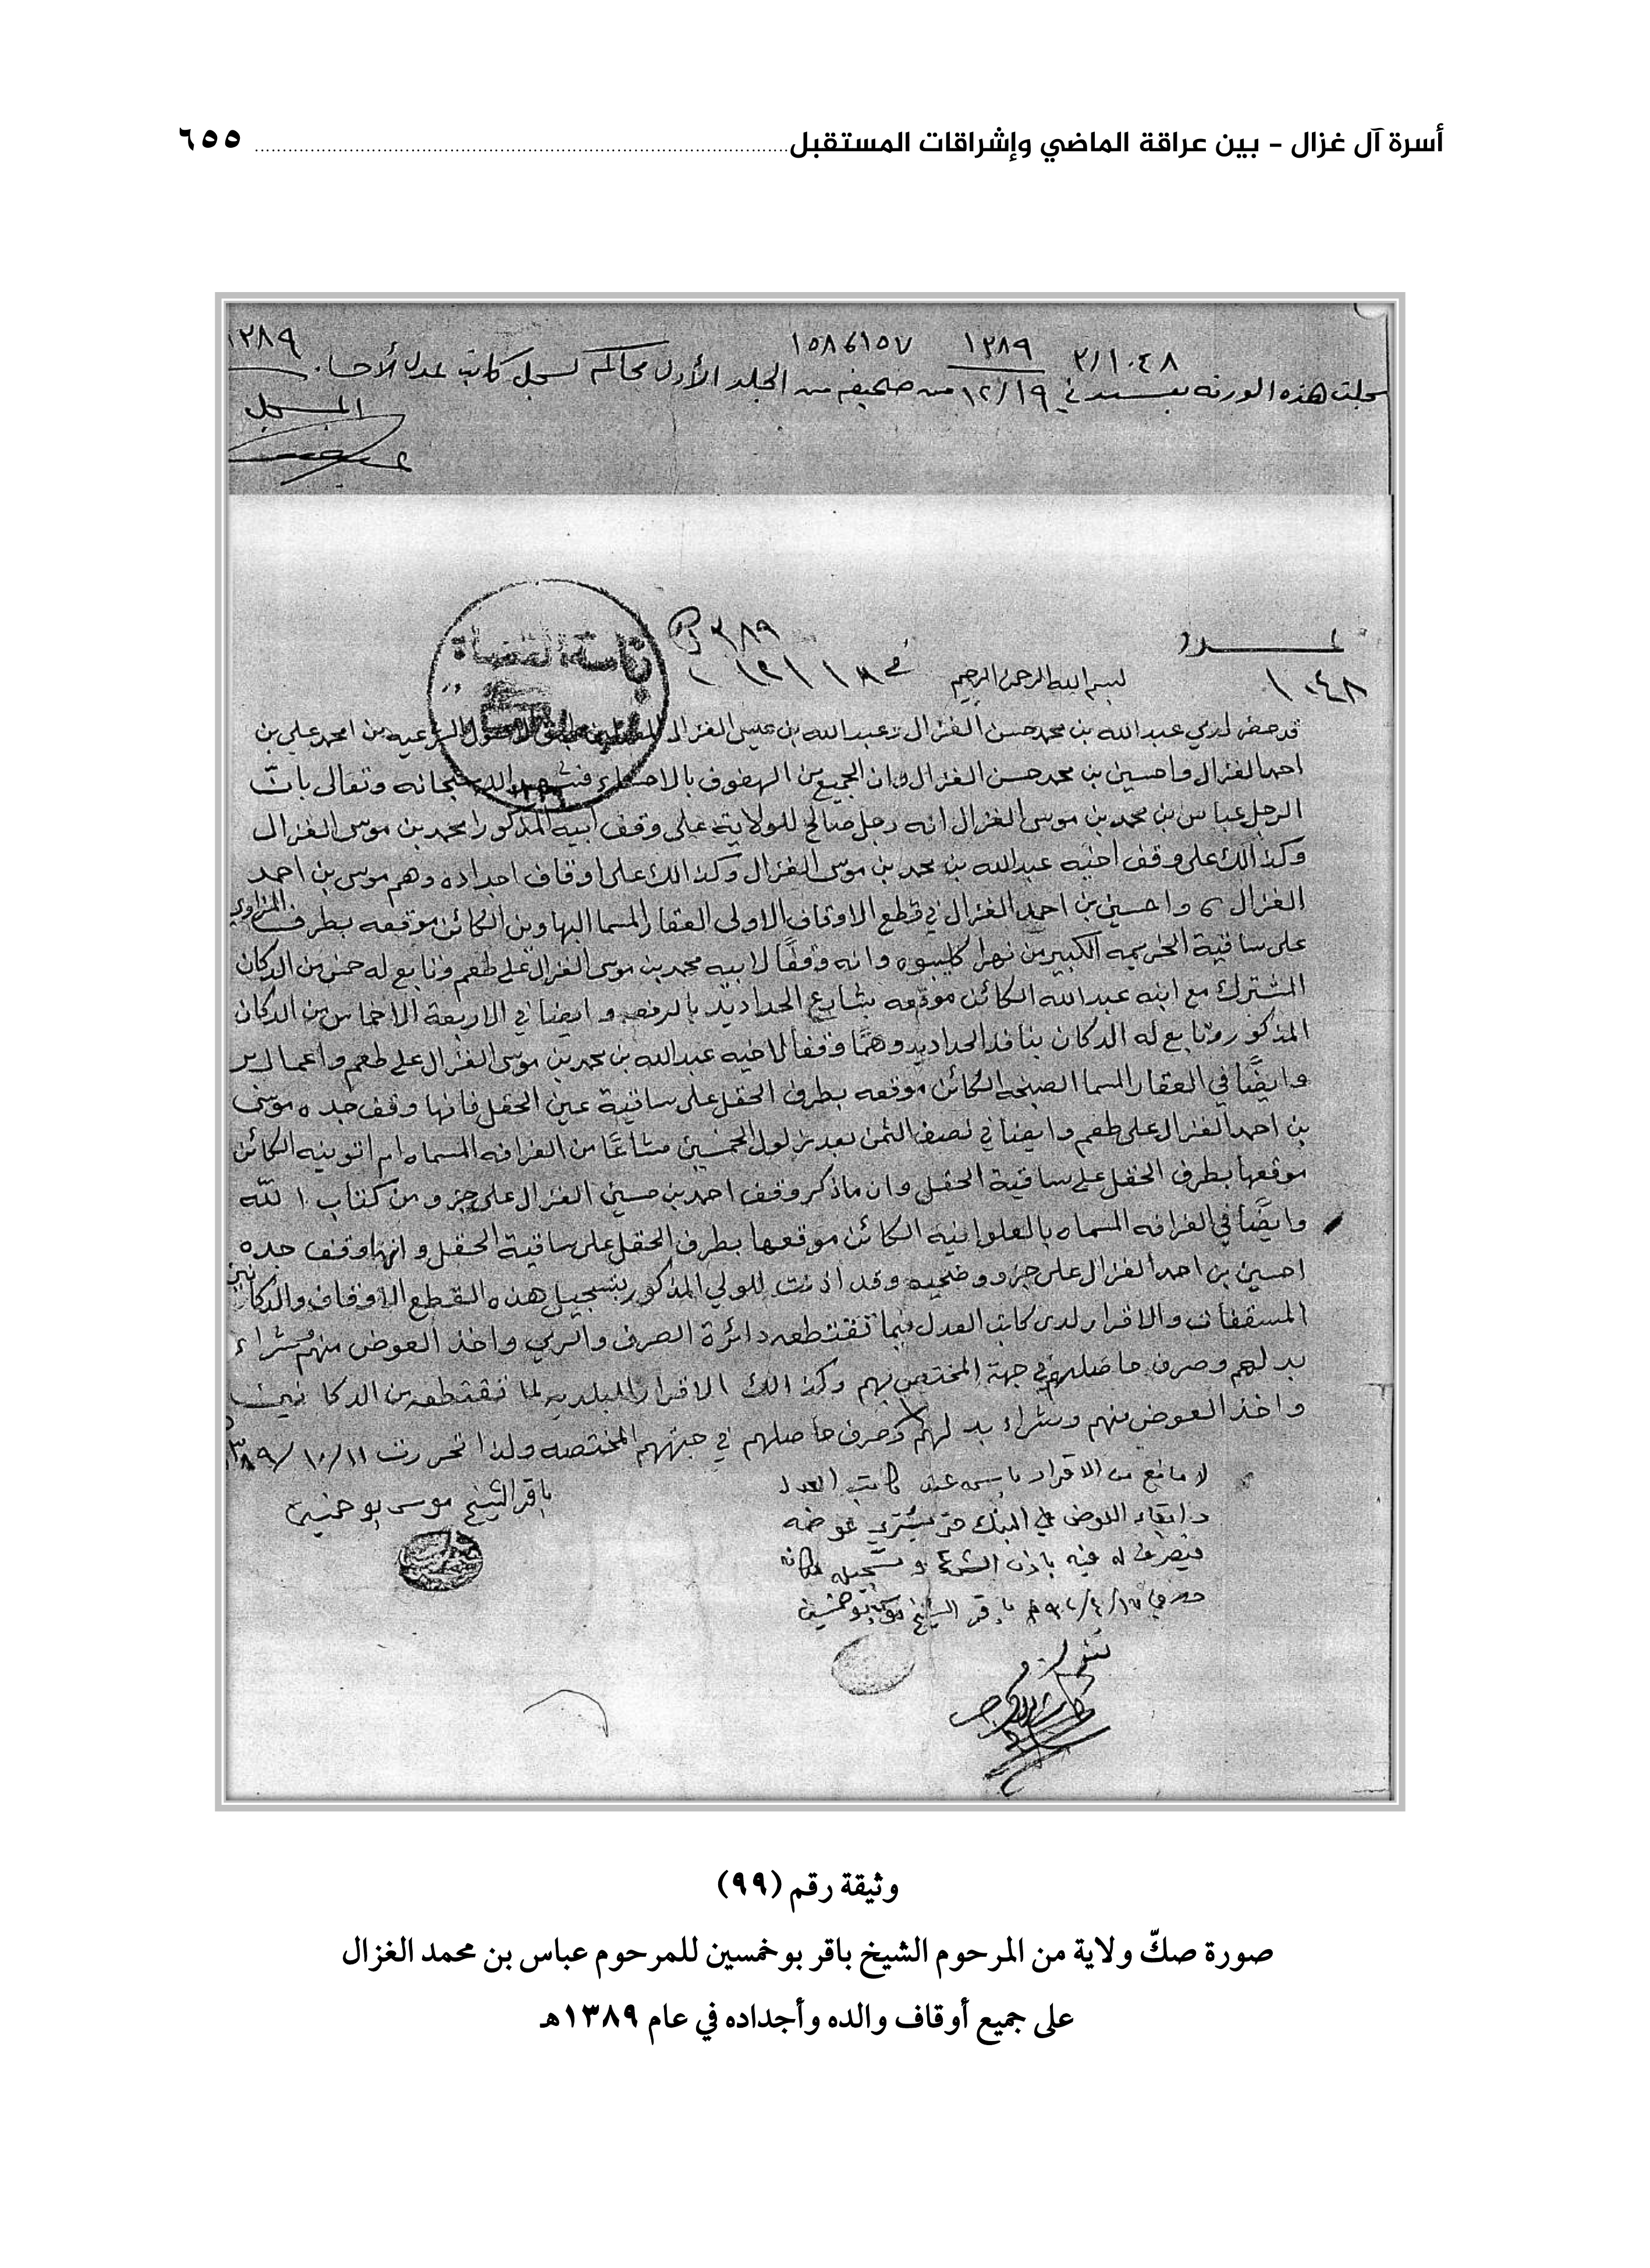 أسرة آل غزال - بين عراقة الماضي وإشراقات المستقبل ٦٥٥
١٠٤٨/٢ ١٣٨٩ ١٥٧ ١٥٨ ١٣٨٩
سجلت هذه الورقة في ١٢/١٩ من صحيفه من الجلد الأول محاكم لسجل كاتب عدل الأحساء
المسجل
عدد
١٠٤٨
بسم الله الرحمن الرحيم
رئاسة القضاة
قد حضر لدي عبدالله بن محمد حسن الغزال وعبدالله بن عيسى الغزال الشرعيه من امحمد علي بن
احمد الغزال واحسين بن محمد حسن الغزال وان الجميع من الهفوف بالاحساء سبحانه وتعالى بان
الرجل عباس بن محمد بن موسى الغزال انه رجل صالح للولاية على وقف ابيه المذكور امحمد بن موسى الغزال
وكذالك على وقف اخيه عبدالله بن محمد بن موسى الغزال وكذالك على اوقاف اجداده وهم موسى بن احمد
الغزال واحسين بن احمد الغزال في قطع الاوقاف الاولى العقار المسما الكائن موقعه بطرف
على ساقية الكبير من نهر وانه وقفا لابيه محمد بن موسى الغزال على طعم وتابع له خمس من الدكان
المشترك مع ابنه عبدالله الكائن موقعه بشارع الحداديد وايضا في الاربعة الاخماس من الدكان
المذكور وتابع له الدكان الحداديد وهما وقفا لاخيه عبدالله بن محمد بن موسى الغزال على طعم واعمال بر
وايضا في العقار المسما الكائن موقعه بطرف الحقل على ساقية عين الحقل فانها وقف جده موسى
بن احمد الغزال على طعم وايضا في نصف الثمن بعد مشاعا من الغرافه المسماه الكائن
موقعها بطرف الحقل على ساقية الحقل وان ماذكر وقف احمد بن حسين الغزال على جزو من كتاب الله
وايضا في الغرافه المسماه بالعلوانيه الكائن موقعها بطرف الحقل على ساقية الحقل وانها وقف جده
احسين بن احمد الغزال على جزو وضحيه وقد اذنت للولي المذكور بتسجيل هذه القطع الاوقاف والدكاكين
المسقفات والاقرار لدى كاتب العدل فيما تقتطعه دائرة الصرف والري واخذ العوض منهم وشراء
بدلهم وصرف حاصلهم في جهة المختص بهم وكذالك الاقرار للبلديه لما تقتطعه من الدكاكين
واخذ العوض منهم وشراء بدلهم وصرف حاصلهم في جهتهم المختصه ولذا تحررت ١١/١٠/١٣٨٩
باقر الشيخ موسى بوخمسين
لا مانع من الاقرار عند كاتب العدل
وابقاء العوض في البنك حتى يشتري عوضه
باذن الشرع وتسجيله مكانه
باقر الشيخ موسى بوخمسين
وثيقة رقم (٩٩)
صورة صكّ ولاية من المرحوم الشيخ باقر بوخمسين للمرحوم عباس بن محمد الغزال
على جميع أوقاف والده وأجداده في عام ١٣٨٩هـ